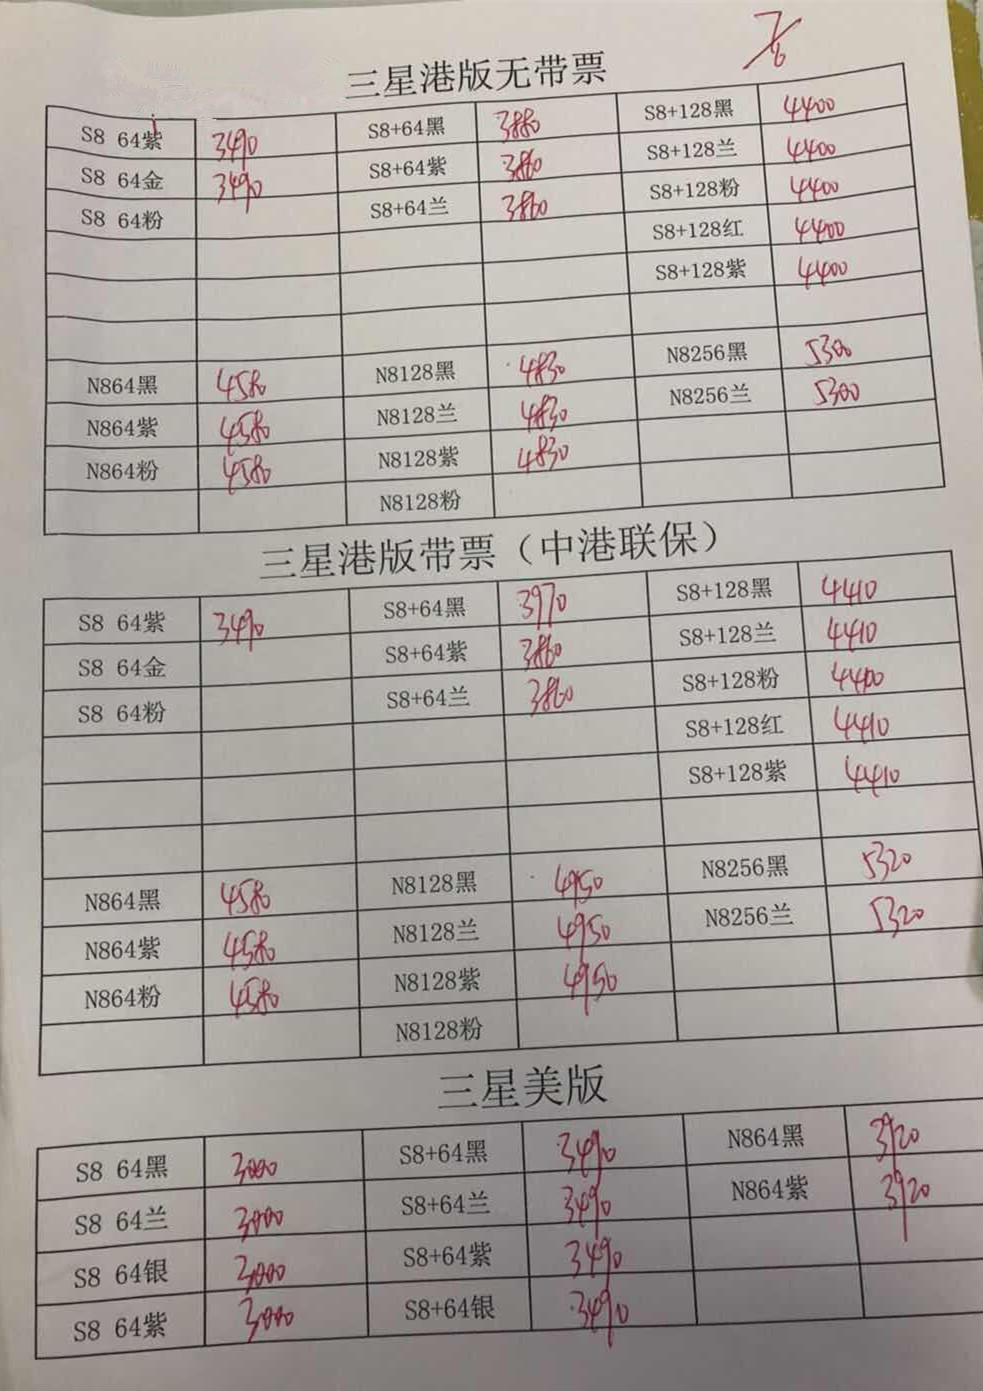 7/6
三星港版无带票
S8 64紫 3490 S8+64黑 3880 S8+128黑 4400
S8 64金 3490 S8+64紫 3860 S8+128兰 4400
S8 64粉 S8+64兰 3860 S8+128粉 4400
S8+128红 4400
S8+128紫 4400
N864黑 4580 N8128黑 4830 N8256黑 5300
N864紫 4580 N8128兰 4830 N8256兰 5300
N864粉 4580 N8128紫 4830
N8128粉
三星港版带票（中港联保）
S8 64紫 3490 S8+64黑 3970 S8+128黑 4410
S8 64金 S8+64紫 3860 S8+128兰 4410
S8 64粉 S8+64兰 3860 S8+128粉 4400
S8+128红 4410
S8+128紫 4410
N864黑 4580 N8128黑 4950 N8256黑 5320
N864紫 4580 N8128兰 4950 N8256兰 5320
N864粉 4580 N8128紫 4950
N8128粉
三星美版
S8 64黑 3000 S8+64黑 3490 N864黑 3920
S8 64兰 3000 S8+64兰 3490 N864紫 3920
S8 64银 3000 S8+64紫 3490
S8 64紫 3000 S8+64银 3490